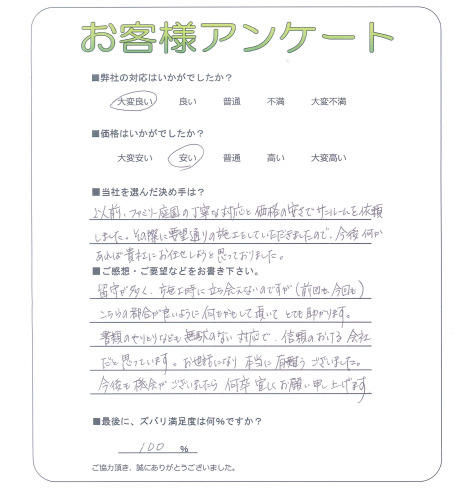 お客様アンケート
■弊社の対応はいかがでしたか?
大変良い 良い 普通 不満 大変不満
■価格はいかがでしたか?
大変安い 安い 普通 高い 大変高い
■当社を選んだ決め手は?
以前、ファミリー庭園の丁寧な対応と価格の安さでサンルームを依頼
しました。その際に要望通りの施工をしていただきましたので、今後何か
あれば貴社にお任せしようと思っておりました。
■ご感想・ご要望などをお書き下さい。
留守が多く、施工時に立ち会えないのですが(前回も今回も)
こちらの都合が良いように何もかもして頂いて とても助かります。
書類のやりとりなども無駄のない対応で、信頼のおける会社
だと思っています。お世話になり 本当に有難うございました。
今後も機会がございましたら 何卒宜しくお願い申し上げます
■最後に、ズバリ満足度は何%ですか?
100 %
ご協力頂き、誠にありがとうございました。